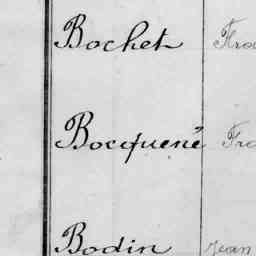 Bochet
Bocquené
Bodin Jean